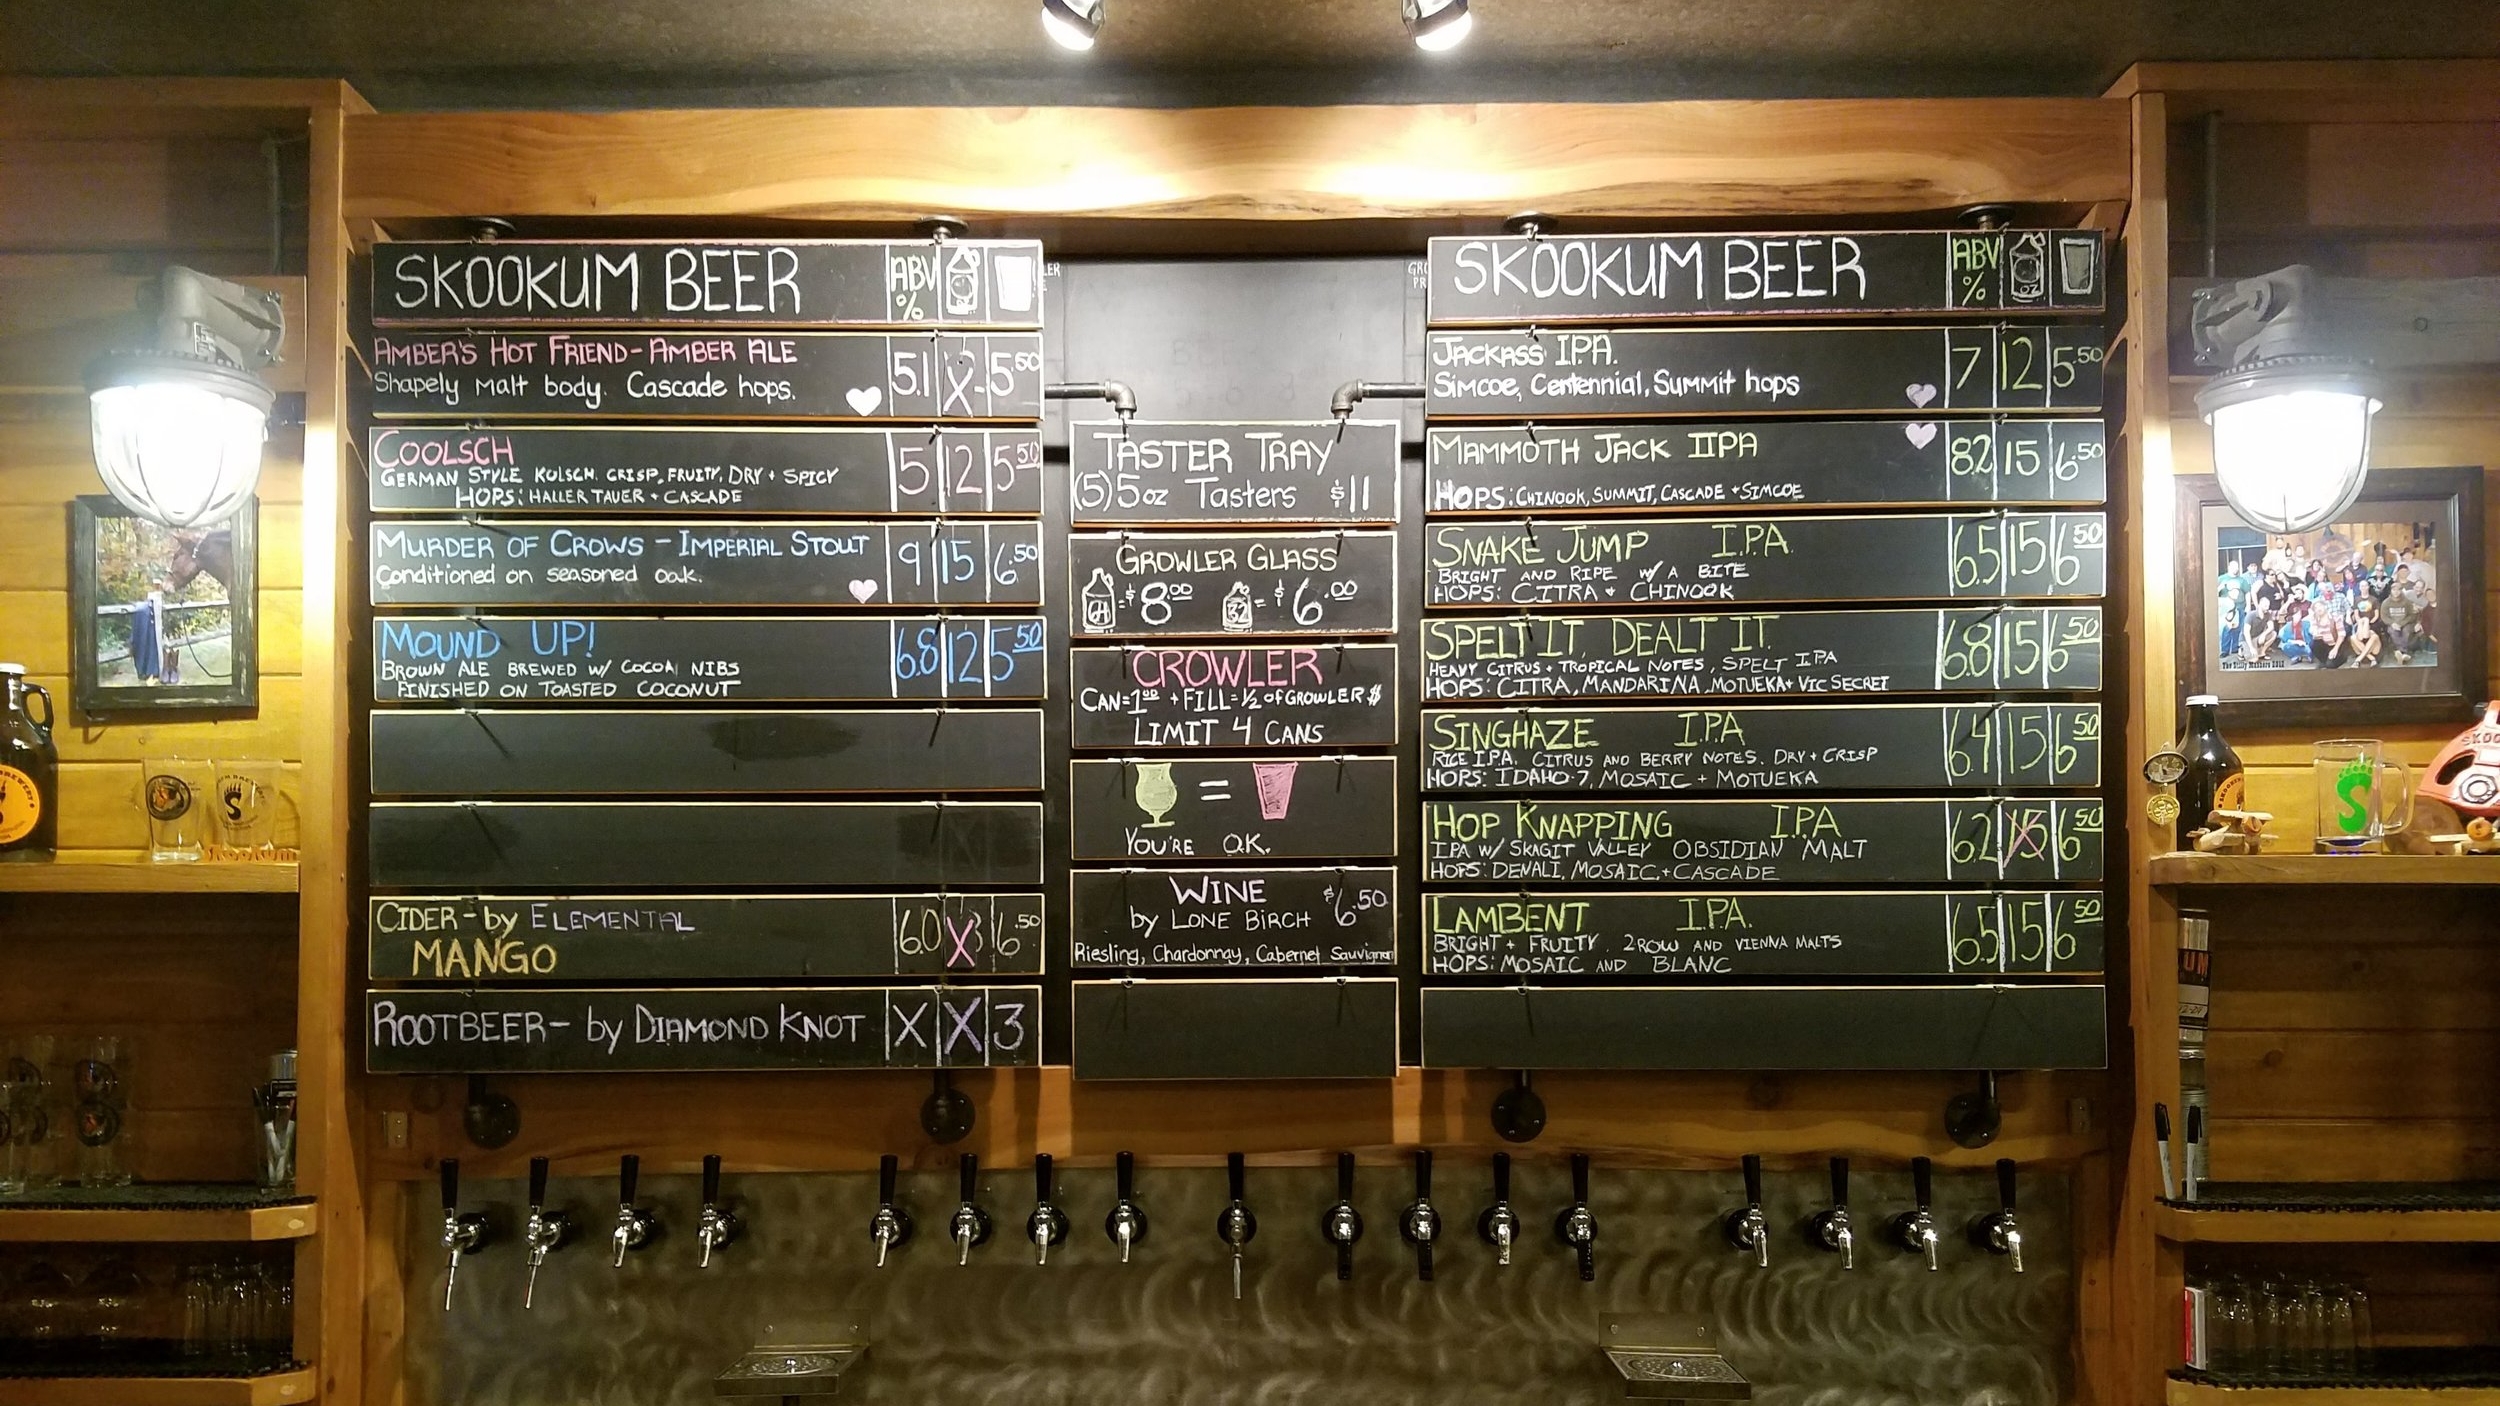 SKOOKUM BEER ABV %
AMBER'S HOT FRIEND - AMBER ALE 5.1 X 5.50
Shapely malt body. Cascade hops.
COOLSCH 5 12 5.50
GERMAN STYLE KOLSCH. CRISP, FRUITY, DRY + SPICY
HOPS: HALLERTAUER + CASCADE
MURDER OF CROWS - IMPERIAL STOUT 9 15 6.50
Conditioned on seasoned oak.
MOUND UP! 6.8 12 5.50
BROWN ALE BREWED W/ COCOA NIBS
FINISHED ON TOASTED COCONUT
CIDER - by ELEMENTAL 6.0 X 6.50
MANGO
ROOTBEER - by DIAMOND KNOT X X 3
TASTER TRAY
(5) 5oz Tasters $11
GROWLER GLASS
64 = $8.00 32 = $6.00
CROWLER
CAN = 1.00 + FILL = 1/2 of GROWLER $
LIMIT 4 CANS
=
YOU'RE O.K.
WINE $6.50
by LONE BIRCH
Riesling, Chardonnay, Cabernet Sauvignon
SKOOKUM BEER ABV % OZ
JACKASS I.P.A. 7 12 5.50
Simcoe, Centennial, Summit hops
MAMMOTH JACK IIPA 8.2 15 6.50
HOPS: CHINOOK, SUMMIT, CASCADE + SIMCOE
SNAKE JUMP I.P.A. 6.5 15 6.50
BRIGHT AND RIPE W/ A BITE
HOPS: CITRA + CHINOOK
SPELT IT, DEALT IT. 6.8 15 6.50
HEAVY CITRUS + TROPICAL NOTES, SPELT IPA
HOPS: CITRA, MANDARINA, MOTUEKA + VIC SECRET
SINGHAZE I.P.A. 6.4 15 6.50
RICE I.P.A. CITRUS AND BERRY NOTES. DRY + CRISP
HOPS: IDAHO-7, MOSAIC + MOTUEKA
HOP KNAPPING I.P.A. 6.2 15 6.50
IPA W/ SKAGIT VALLEY OBSIDIAN MALT
HOPS: DENALI, MOSAIC, + CASCADE
LAMBENT I.P.A. 6.5 15 6.50
BRIGHT + FRUITY. 2 ROW AND VIENNA MALTS
HOPS: MOSAIC AND BLANC